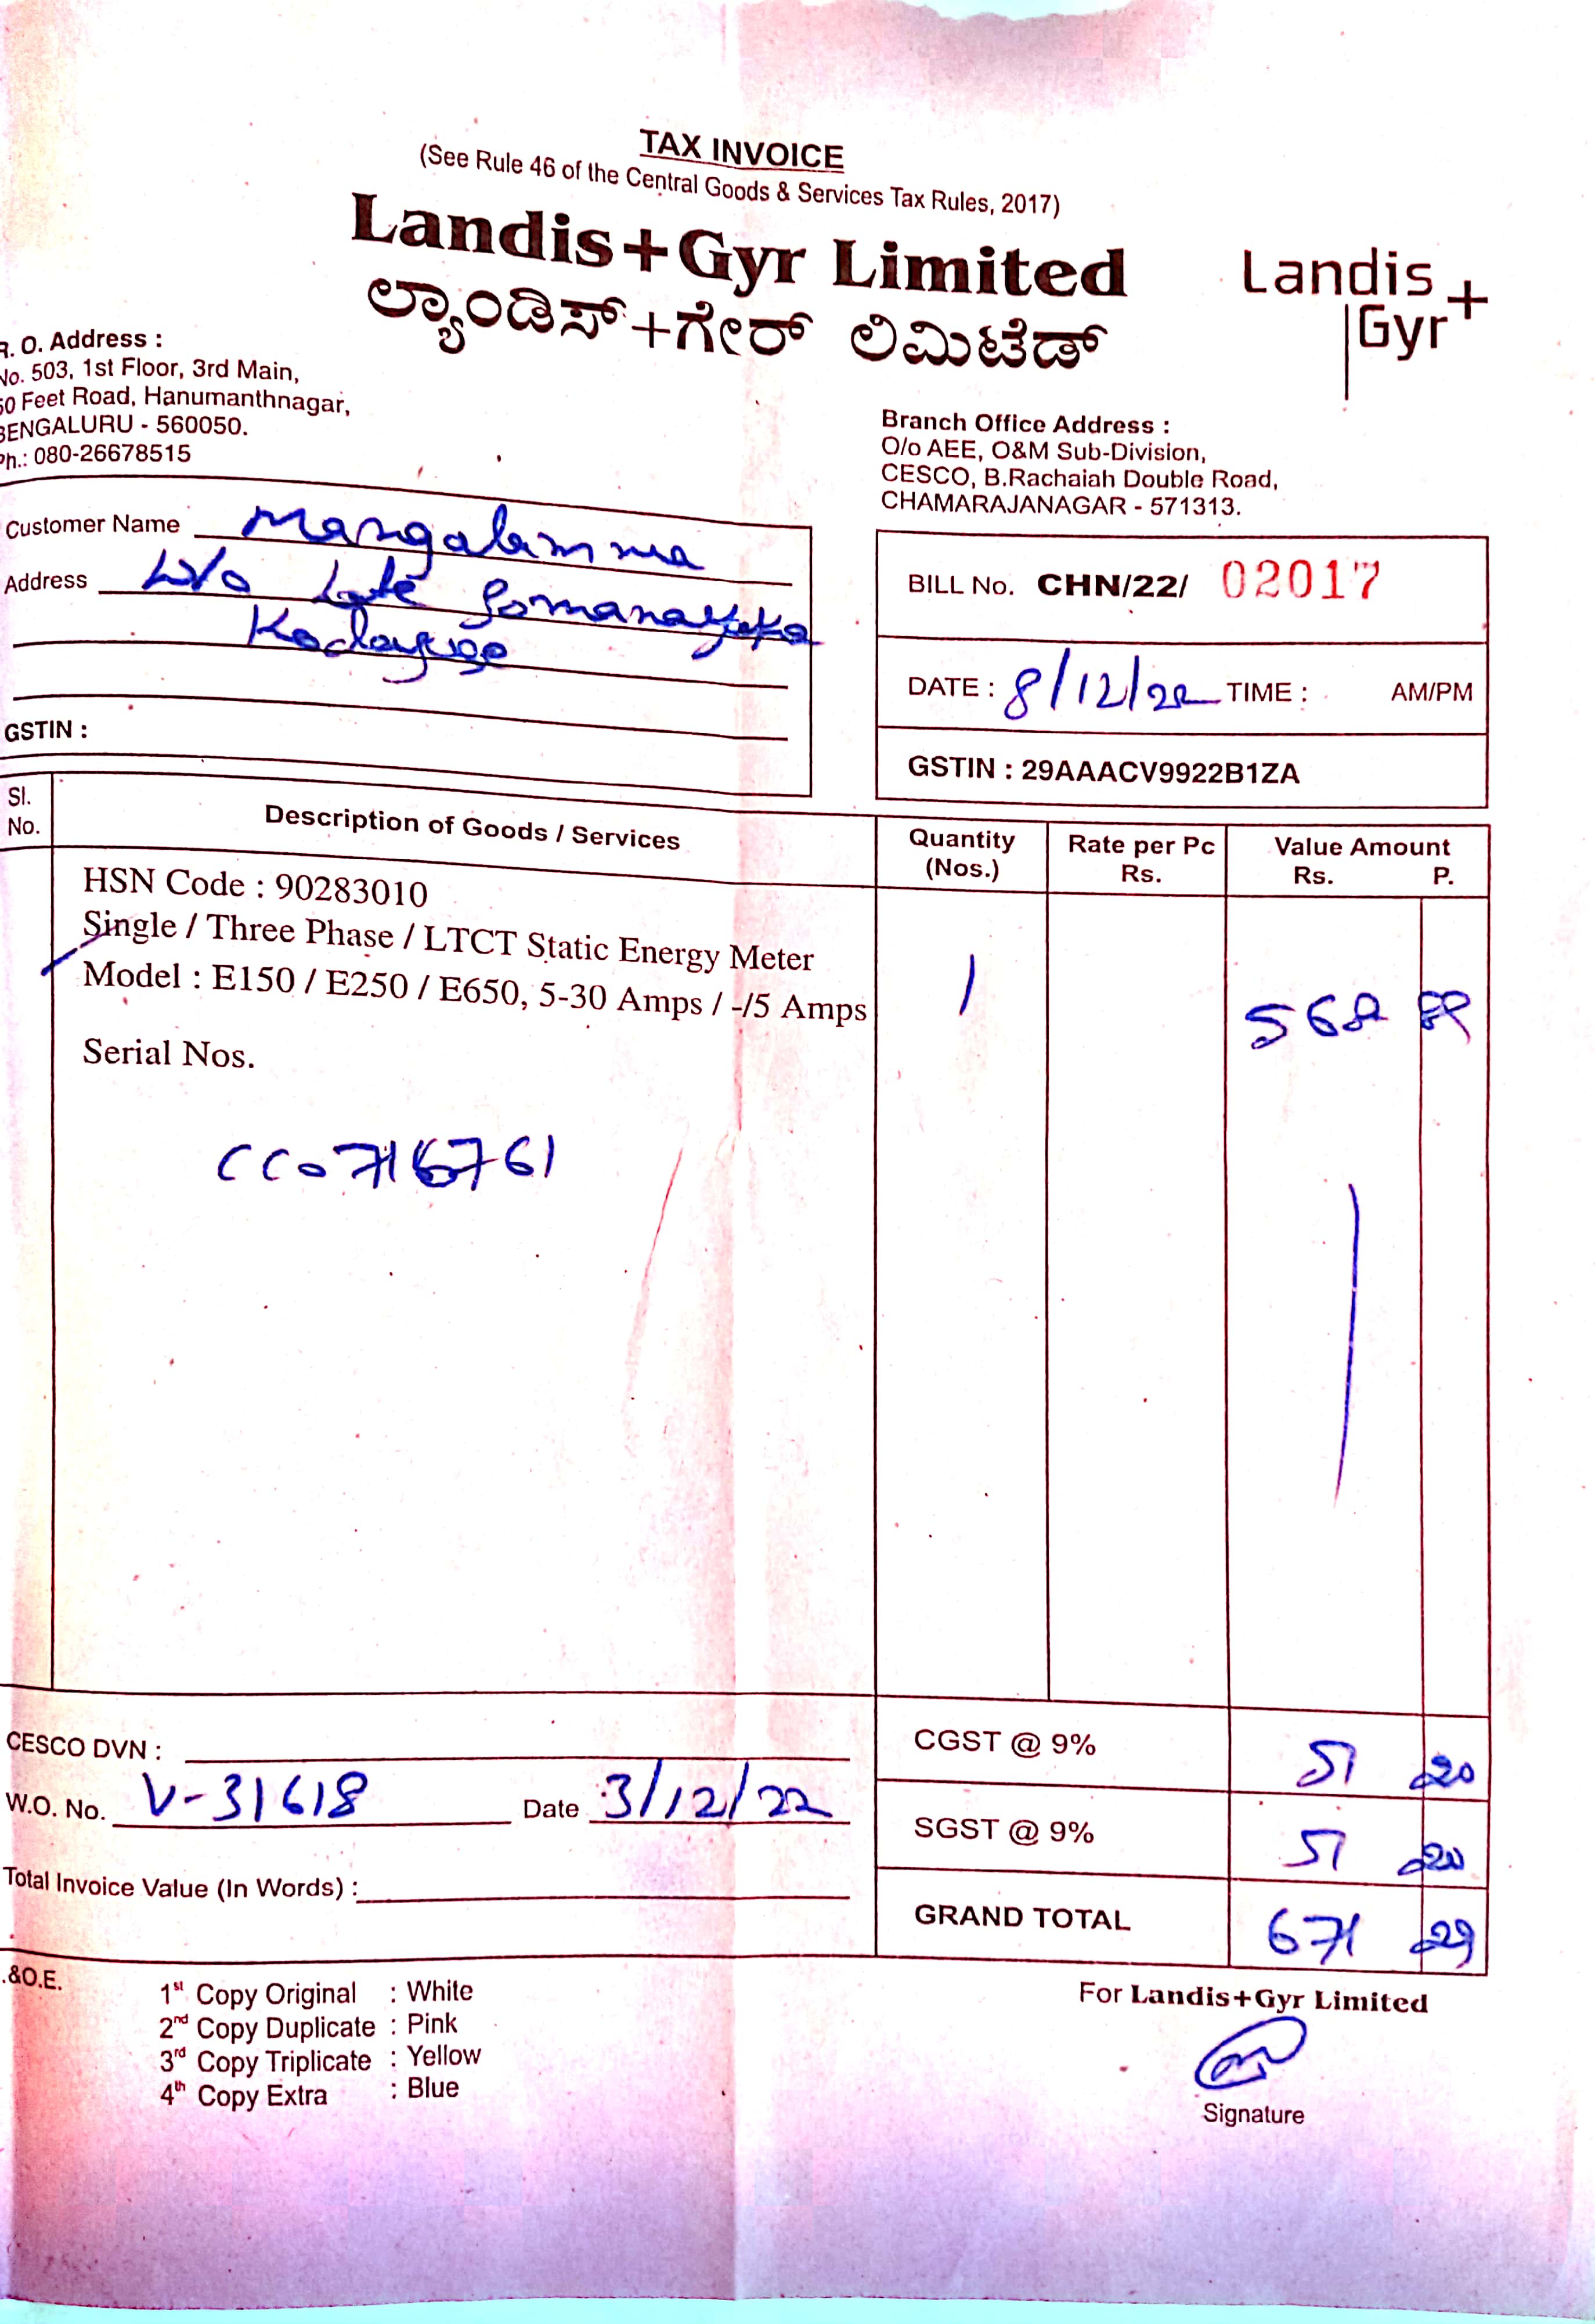 TAX INVOICE
(See Rule 46 of the Central Goods & Services Tax Rules, 2017)
Landis+Gyr Limited
ಲ್ಯಾಂಡಿಸ್+ಗೇರ್ ಲಿಮಿಟೆಡ್
Landis+
Gyr
R. O. Address :
No. 503, 1st Floor, 3rd Main,
50 Feet Road, Hanumanthnagar,
BENGALURU - 560050.
Ph.: 080-26678515
Branch Office Address :
O/o AEE, O&M Sub-Division,
CESCO, B.Rachaiah Double Road,
CHAMARAJANAGAR - 571313.
Customer Name Mangalamma
Address W/o Late Somanayaka
GSTIN :
BILL No. CHN/22/ 02017
DATE : 8/12/22 TIME : AM/PM
GSTIN : 29AAACV9922B1ZA
Sl. No. Description of Goods / Services Quantity (Nos.) Rate per Pc Rs. Value Amount Rs. P.
HSN Code : 90283010
Single / Three Phase / LTCT Static Energy Meter
Model : E150 / E250 / E650, 5-30 Amps / -/5 Amps 1 568
Serial Nos.
CC0716761
CESCO DVN :
W.O. No. V-31618 Date 3/12/22
Total Invoice Value (In Words) :
CGST @ 9% 51 20
SGST @ 9% 51 20
GRAND TOTAL 671 29
.&O.E.
1st Copy Original : White
2nd Copy Duplicate : Pink
3rd Copy Triplicate : Yellow
4th Copy Extra : Blue
For Landis+Gyr Limited
Signature